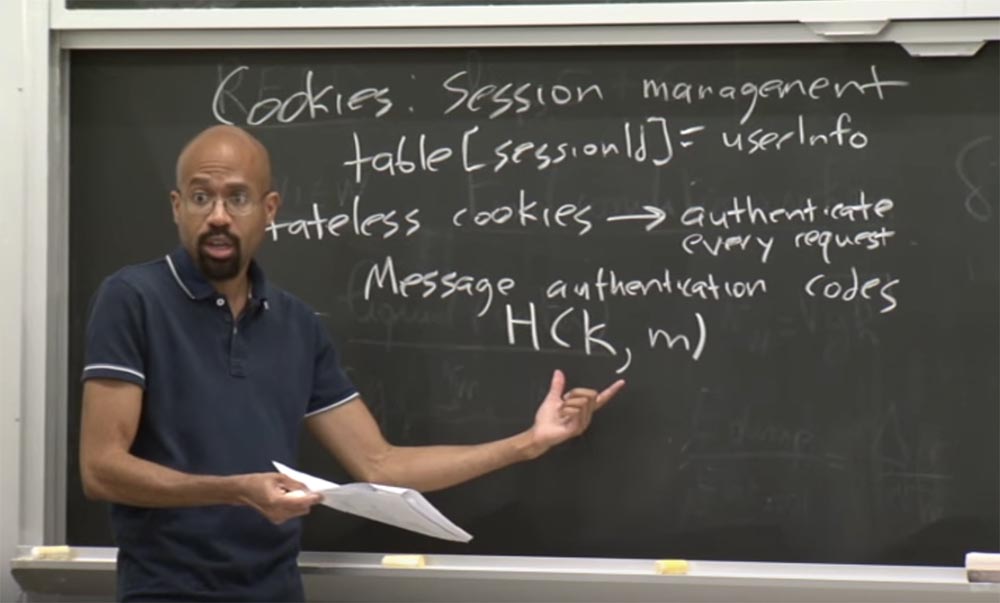 Cookies: Session management
table[sessionId]= userInfo
tateless cookies → authenticate
every request
Message authentication codes
H(k, m)